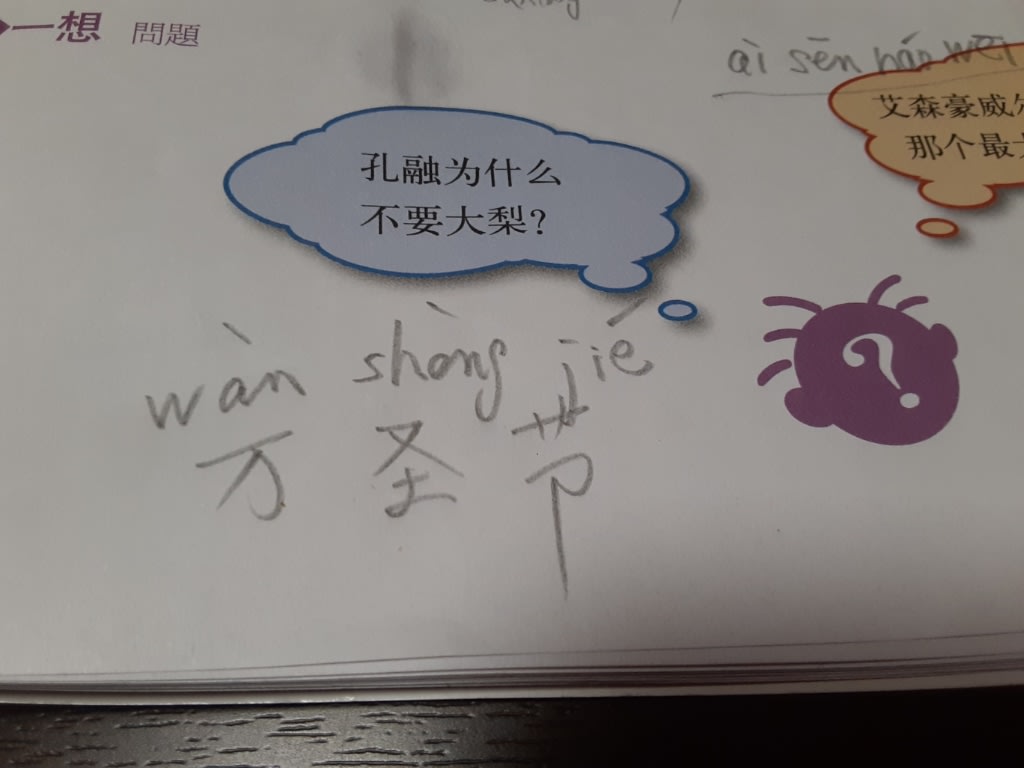 一想 問題
ài sēn háo wēi
艾森豪威尔
那个最大
孔融为什么
不要大梨?
wàn shèng jié
万圣节
?